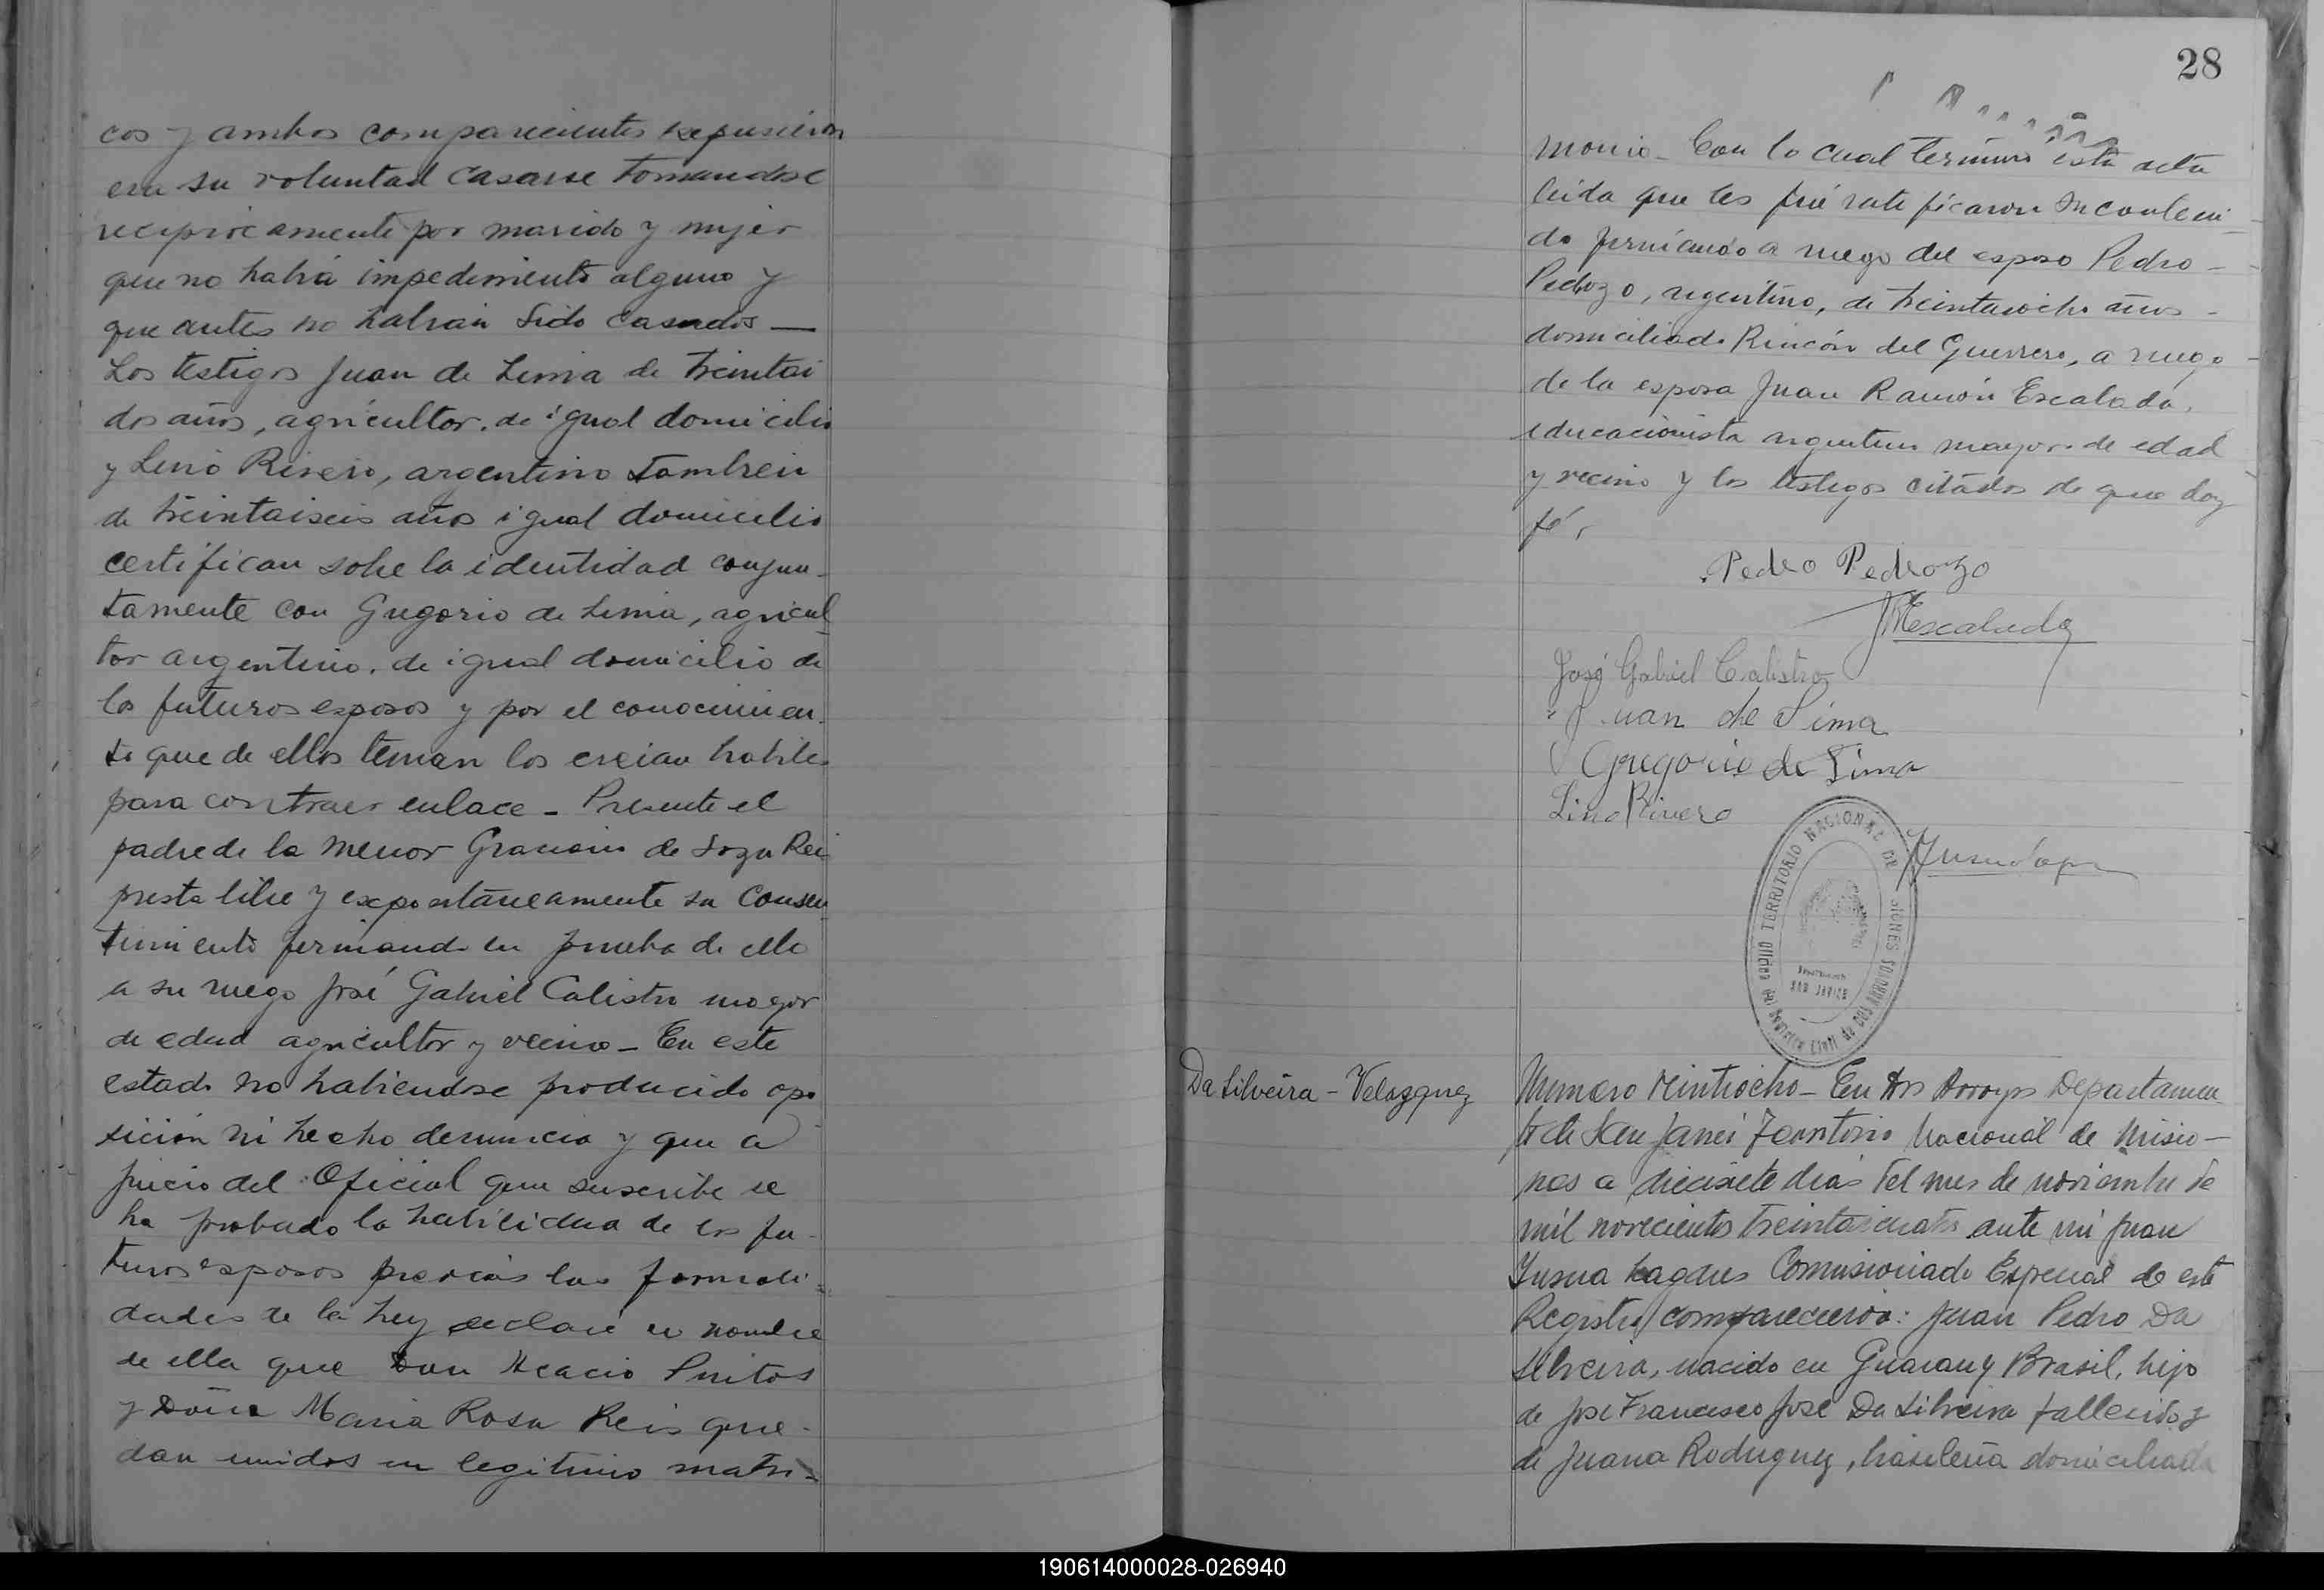 cos y ambos comparecientes expusieron
era su voluntad casarse tomandose
reciprocamente por marido y mujer
que no había impedimento alguno y
que antes no habian sido casados —
Los testigos Juan de Lima de treintai
dos años, agricultor, de igual domicilio
y Lino Rivero, argentino tambien
de treintaiseis años igual domicilio
certifican sobre la identidad conjun-
tamente con Gregorio de Lima, agricul
tor argentino, de igual domicilio de
los futuros esposos y por el conocimien-
to que de ellos tenian los creian habiles
para contraer enlace - Presente el
padre de la menor de Reis
presta libre y expontáneamente su consen
timiento firmando en prueba de ello
a su ruego José Gabriel Calistro mayor
de edad agricultor y vecino - En este
estado no habiendose producido opo
sición ni hecho denuncia y que a
juicio del Oficial que suscribe se
ha probado la habilidad de los fu-
turos esposos previas las formali-
dades de la ley declaré en nombre
de ella que Don Acacio
y Doña Maria Rosa Reis que-
dan unidos en legitimo matri-
28
monio - Con lo cual terminó esta acta
leida que les fué ratificaron su conteni-
do firmando a ruego del esposo Pedro -
Pedrozo, argentino, de treintaiocho años -
domiciliado Rincón del Guerrero, a ruego -
de la esposa Juan Ramón Escalada,
educacionista argentino mayor de edad
y vecino y los testigos citados de que doy
fé,
Pedro Pedrozo
JREscalada
José Gabriel Calistro
Juan de Lima
Gregorio de Lima
Lino Rivero
TERRITORIO NACIONAL DE MISIONES
Oficina del Registro Civil de DOS ARROYOS
Departamento
SAN JAVIER
Da Silveira - Velazquez
Numero veintiocho - En Dos Arroyos Departamen
to de San Javier Territorio Nacional de Misio-
nes a diecisiete dias del mes de noviembre de
mil novecientos treintaicuatro ante mi Juan
Comisionado Especial de este
Registro comparecieron: Juan Pedro Da
Silveira, nacido en Guarany Brasil, hijo
de José Francisco José Da Silveira fallecido y
de Juana Rodriguez, brasileña domiciliada
190614000028-026940